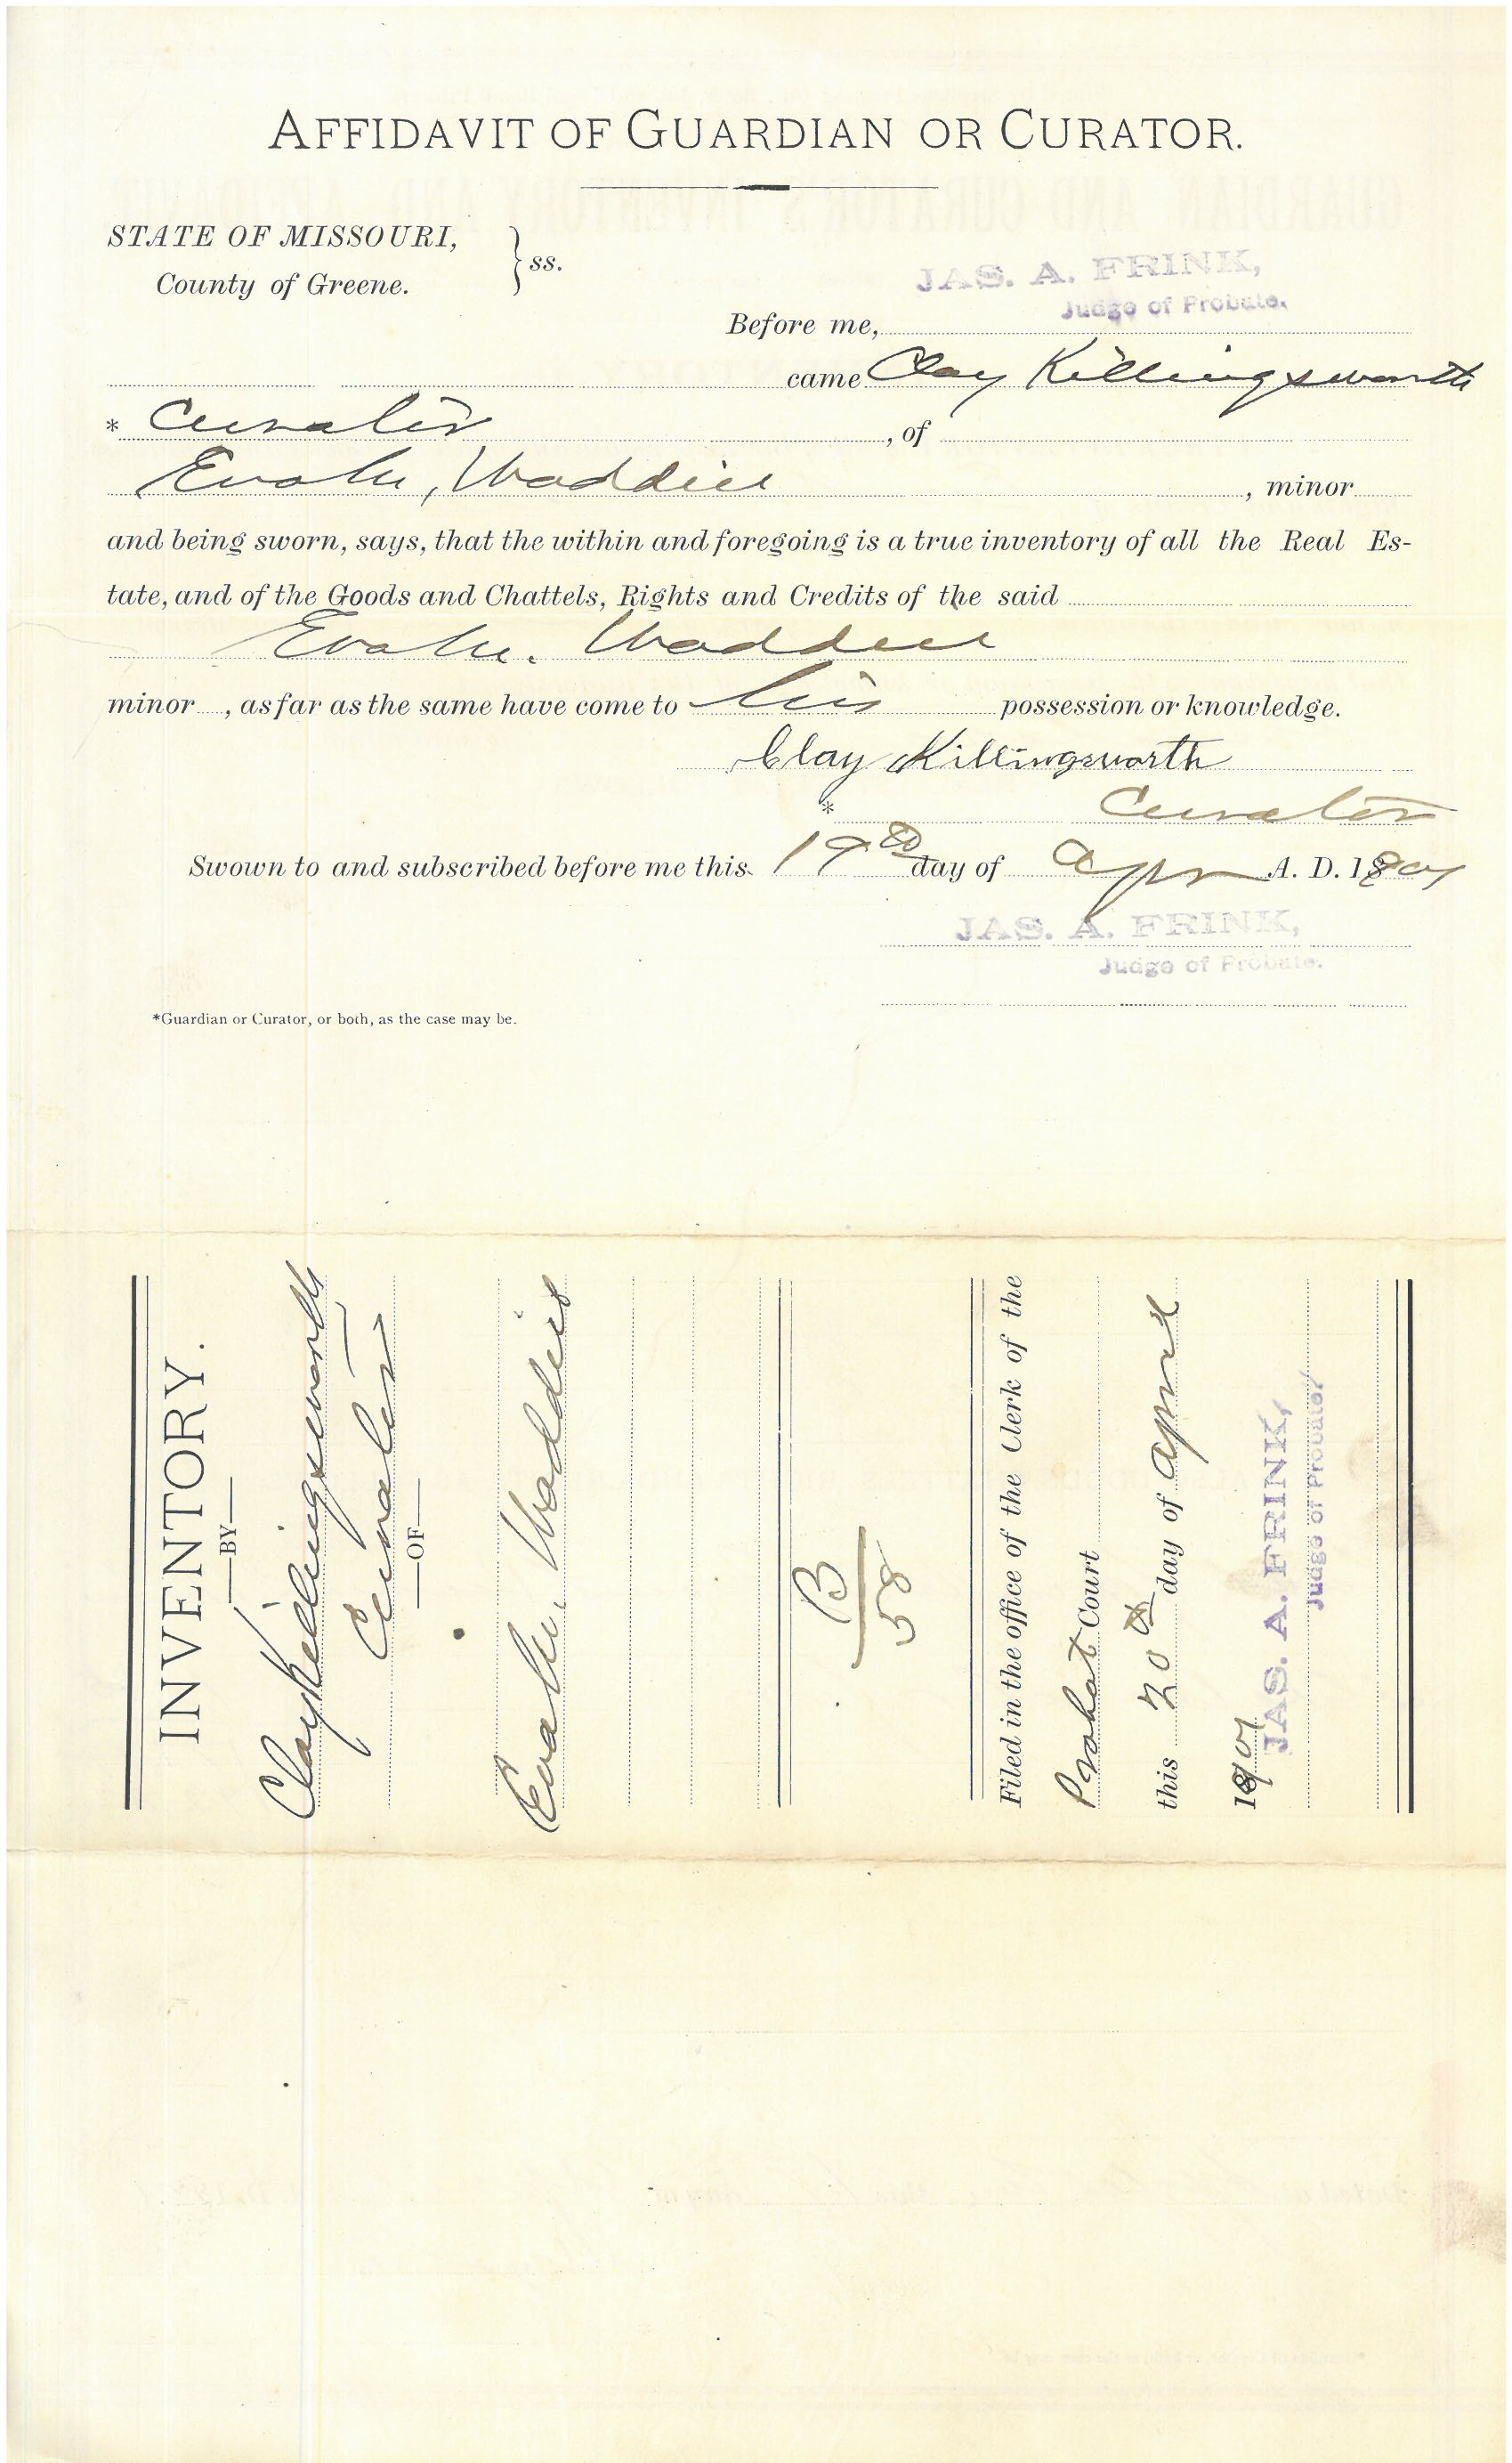 AFFIDAVIT OF GUARDIAN OR CURATOR.
STATE OF MISSOURI,
County of Greene. } ss.
JAS. A. FRINK,
Judge of Probate.
Before me,
came Clay Killingsworth
* Curator , of
Eva M. Waddill , minor
and being sworn, says, that the within and foregoing is a true inventory of all the Real Es-
tate, and of the Goods and Chattels, Rights and Credits of the said
Eva M. Waddill
minor , as far as the same have come to his possession or knowledge.
Clay Killingsworth
* Curator
Swown to and subscribed before me this 19th day of Apr A. D. 1901
JAS. A. FRINK,
Judge of Probate.
*Guardian or Curator, or both, as the case may be.
INVENTORY.
—BY—
Clay Killingsworth
Curator
—OF—
Eva M. Waddill
B
58
Filed in the office of the Clerk of the
Probat Court
this 20th day of April
1901
JAS. A. FRINK,
Judge of Probate.